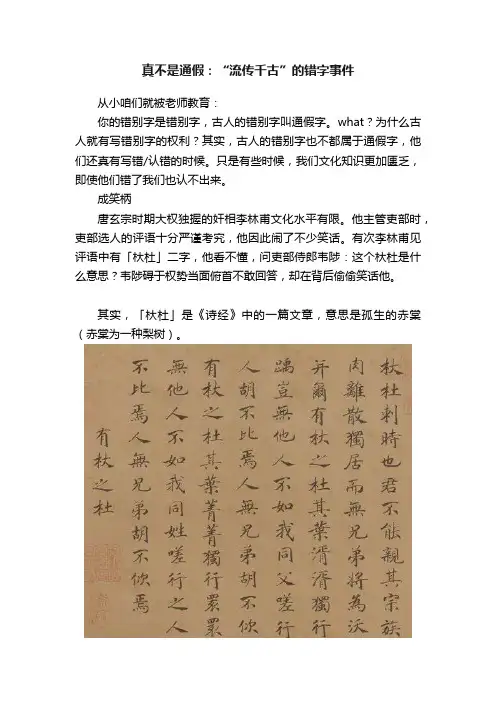 真不是通假：“流传千古”的错字事件
从小咱们就被老师教育：
你的错别字是错别字，古人的错别字叫通假字。what？为什么古
人就有写错别字的权利？其实，古人的错别字也不都属于通假字，他
们还真有写错/认错的时候。只是有些时候，我们文化知识更加匮乏，
即使他们错了我们也认不出来。
成笑柄
唐玄宗时期大权独握的奸相李林甫文化水平有限。他主管吏部时，
吏部选人的评语十分严谨考究，他因此闹了不少笑话。有次李林甫见
评语中有「杕杜」二字，他看不懂，问吏部侍郎韦陟：这个杕杜是什
么意思？韦陟碍于权势当面俯首不敢回答，却在背后偷偷笑话他。
其实，「杕杜」是《诗经》中的一篇文章，意思是孤生的赤棠
（赤棠为一种梨树）。
杕杜刺時也君不能親其宗族
肉離散獨居而無兄弟將為沃
并爾有杕之杜其葉湑湑獨行
踽豈無他人不如我同父嗟行
人胡不比焉人無兄弟胡不佽
有杕之杜其葉菁菁獨行睘睘
無他人不如我同姓嗟行之人
不比焉人無兄弟胡不佽焉
有杕之杜